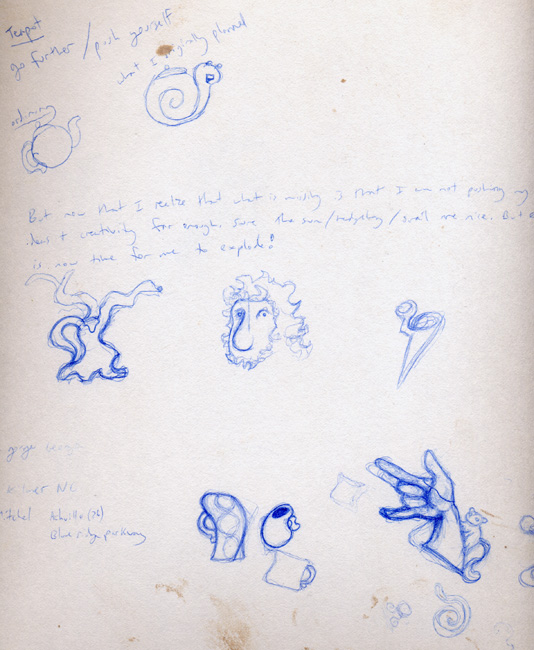 Teapot
go further / push yourself
what I originally planned
ordinary
But now that I realize that what is missing is that I am not pushing my
ideas + creativity far enough. Sure the sun/hedgehog/snail are nice. But
is now time for me to explode!
NC
Asheville (26)
Blue ridge parkway